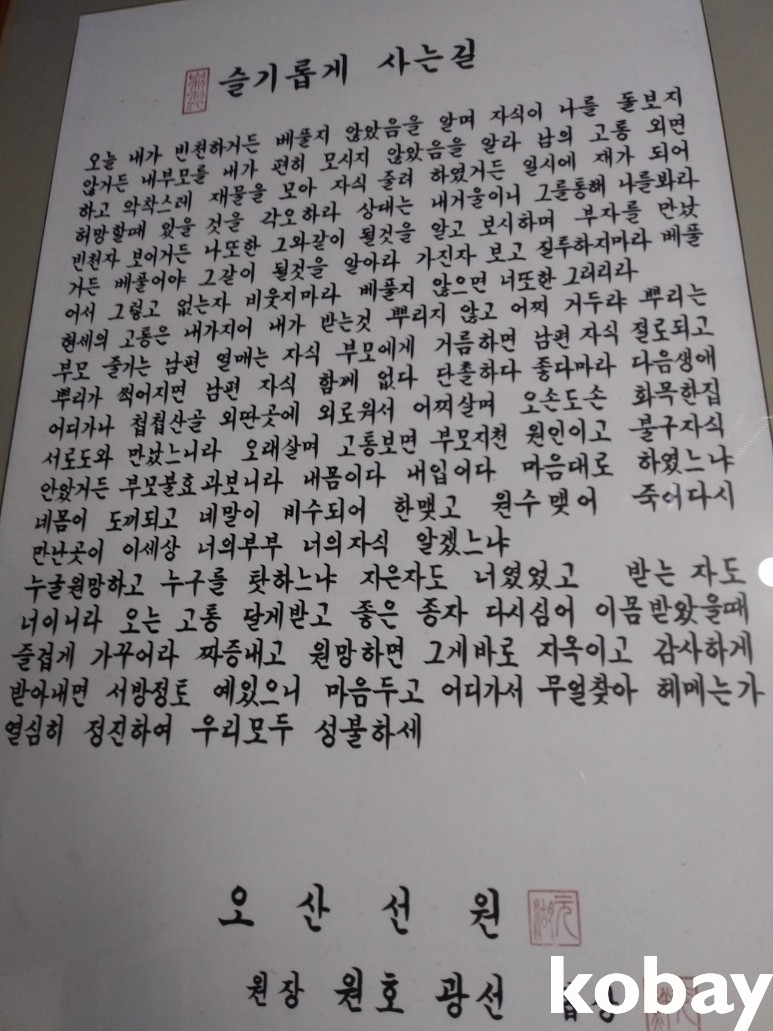 슬기롭게 사는길
오늘 내가 빈천하거든 베풀지 않았음을 알며 자식이 나를 돌보지
않거든 내부모를 내가 편히 모시지 않았음을 알라 남의 고통 외면
하고 악착스레 재물을 모아 자식 줄려 하였거든 일시에 재가 되어
허망할때 왔을 것을 각오하라 상대는 내거울이니 그를통해 나를봐라
빈천자 보이거든 나또한 그와같이 될것을 알고 보시하며 부자를 만났
거든 베풀어야 그같이 될것을 알아라 가진자 보고 질투하지마라 베풀
어서 그렇고 없는자 비웃지마라 베풀지 않으면 너또한 그러리라
현세의 고통은 내가지어 내가 받는것 뿌리지 않고 어찌 거두랴 뿌리는
부모 줄기는 남편 열매는 자식 부모에게 거름하면 남편 자식 절로되고
뿌리가 썩어지면 남편 자식 함께 없다 단촐하다 좋다마라 다음생애
어디가나 첩첩산골 외딴곳에 외로워서 어찌살며 오손도손 화목한집
서로도와 만났느니라 오래살며 고통보면 부모지천 원인이고 불구자식
안았거든 부모불효과보니라 내몸이다 내입이다 마음대로 하였느냐
네몸이 도끼되고 네말이 비수되어 한맺고 원수맺어 죽어다시
만난곳이 이세상 너의부부 너의자식 알겠느냐
누굴원망하고 누구를 탓하느냐 지은자도 너였었고 받는 자도
너이니라 오는 고통 달게받고 좋은 종자 다시심어 이몸받았을때
즐겁게 가꾸어라 짜증내고 원망하면 그게바로 지옥이고 감사하게
받아내면 서방정토 예있으니 마음두고 어디가서 무얼찾아 헤메는가
열심히 정진하여 우리모두 성불하세
오산선원
원장 원호 광선
kobay